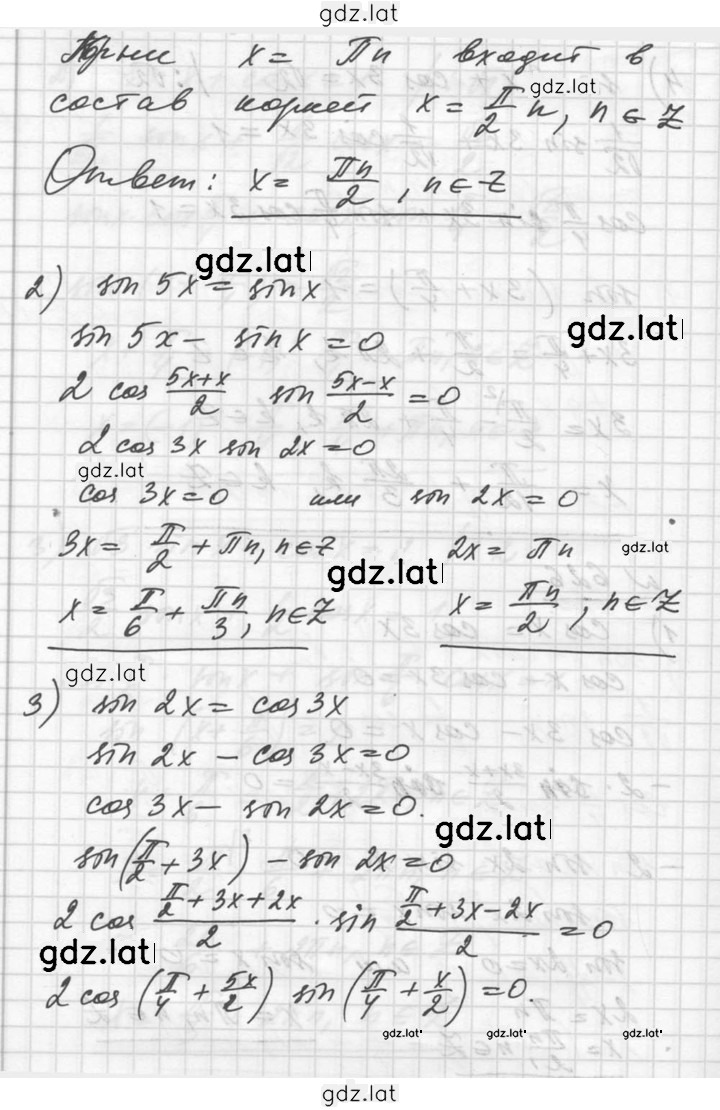 gdz.lat
Корни x = πn входит в
gdz.lat
состав корней x = π/2 n, n ∈ Z
Ответ: x = πn/2, n ∈ Z
gdz.lat
2) sin 5x = sin x
gdz.lat
sin 5x - sin x = 0
2 cos (5x+x)/2 sin (5x-x)/2 = 0
2 cos 3x sin 2x = 0
gdz.lat
cos 3x = 0 или sin 2x = 0
3x = π/2 + πn, n ∈ Z 2x = πn
gdz.lat
gdz.lat
x = π/6 + πn/3, n ∈ Z x = πn/2, n ∈ Z
gdz.lat
3) sin 2x = cos 3x
sin 2x - cos 3x = 0
cos 3x - sin 2x = 0.
gdz.lat
sin(π/2 + 3x) - sin 2x = 0
2 cos (π/2 + 3x + 2x)/2 · sin (π/2 + 3x - 2x)/2 = 0
gdz.lat
2 cos (π/4 + 5x/2) sin (π/4 + x/2) = 0.
gdz.lat gdz.lat gdz.lat
gdz.lat